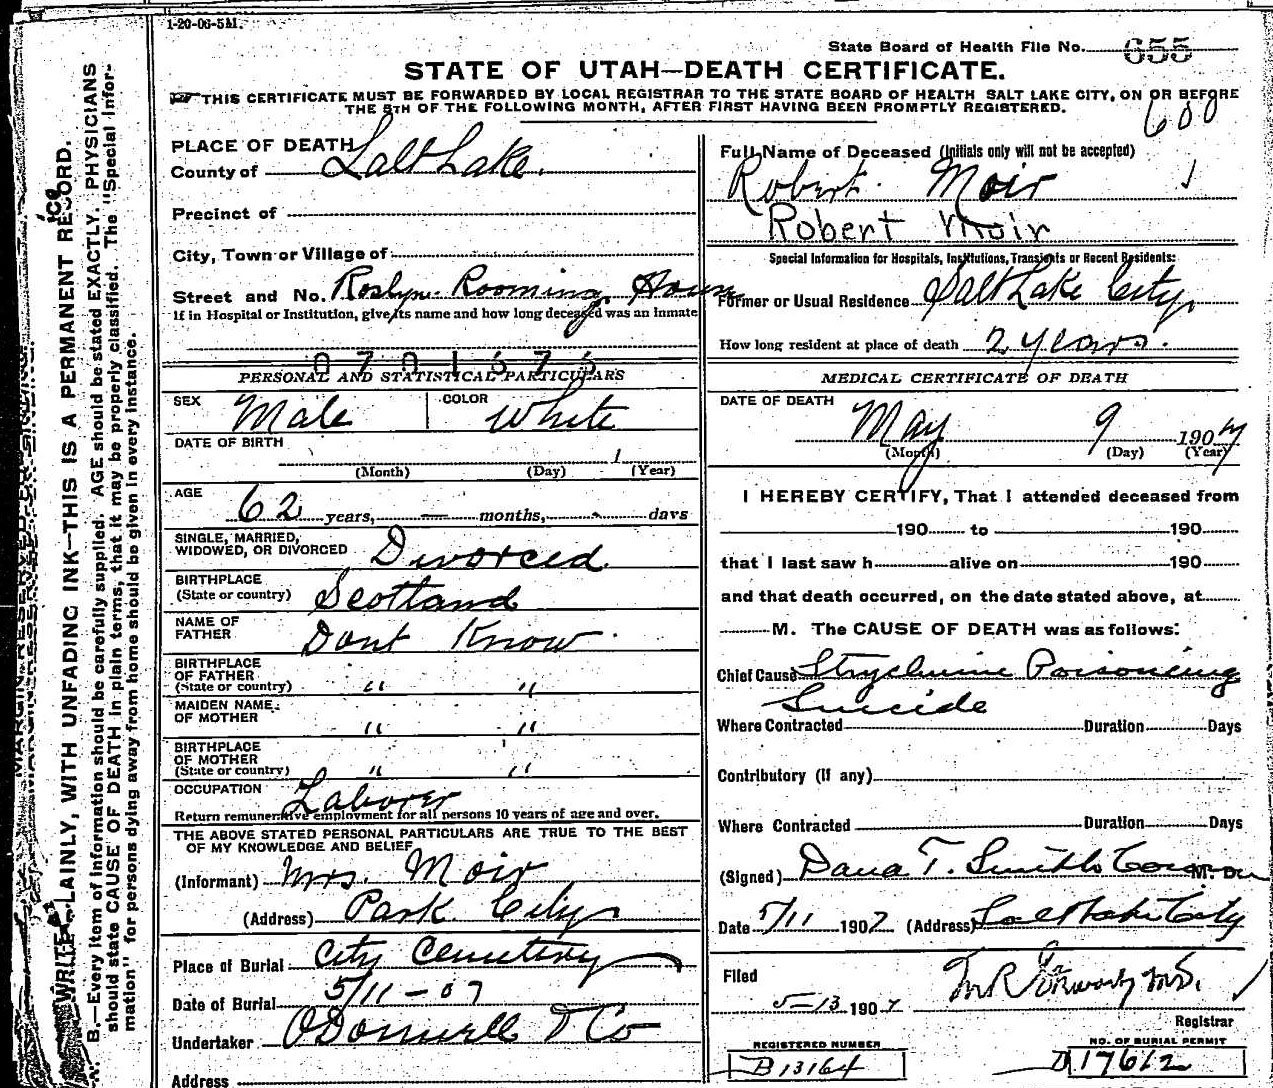 1-20-06-5M.
State Board of Health File No. 655
STATE OF UTAH—DEATH CERTIFICATE.
THIS CERTIFICATE MUST BE FORWARDED BY LOCAL REGISTRAR TO THE STATE BOARD OF HEALTH SALT LAKE CITY, ON OR BEFORE
THE 5TH OF THE FOLLOWING MONTH, AFTER FIRST HAVING BEEN PROMPTLY REGISTERED.
600
PLACE OF DEATH
County of Salt Lake.
Precinct of
City, Town or Village of
Street and No. Roslyn Rooming House
If in Hospital or Institution, give its name and how long deceased was an Inmate
PERSONAL AND STATISTICAL PARTICULARS
SEX Male COLOR White
DATE OF BIRTH
(Month) (Day) 1 (Year)
AGE 62 years, — months, - days
SINGLE, MARRIED,
WIDOWED, OR DIVORCED Divorced
BIRTHPLACE
(State or country) Scotland
NAME OF
FATHER Dont Know
BIRTHPLACE
OF FATHER
(State or country) " "
MAIDEN NAME
OF MOTHER " "
BIRTHPLACE
OF MOTHER
(State or country) " "
OCCUPATION Laborer
Return remunerative employment for all persons 10 years of age and over.
THE ABOVE STATED PERSONAL PARTICULARS ARE TRUE TO THE BEST
OF MY KNOWLEDGE AND BELIEF
(Informant) Mrs. Moir
(Address) Park City
Place of Burial City Cemetery
Date of Burial 5/11-07
Undertaker O'Donnell & Co
Address
Full Name of Deceased (Initials only will not be accepted)
Robert Moir
Robert Moir
Special Information for Hospitals, Institutions, Transients or Recent Residents:
Former or Usual Residence Salt Lake City
How long resident at place of death 2 years.
MEDICAL CERTIFICATE OF DEATH
DATE OF DEATH
May 9 1907
(Month) (Day) (Year)
I HEREBY CERTIFY, That I attended deceased from
190 to 190
that I last saw h alive on 190
and that death occurred, on the date stated above, at
M. The CAUSE OF DEATH was as follows:
Chief Cause Strychnine Poisoning
Suicide
Where Contracted Duration Days
Contributory (if any)
Where Contracted Duration Days
(Signed) Dana T. Smith M. D.
Date 5/11 1907 (Address) Salt Lake City
Filed
5-13 1907
Registrar
REGISTERED NUMBER
B13164
NO. OF BURIAL PERMIT
D17612
WRITE PLAINLY, WITH UNFADING INK—THIS IS A PERMANENT RECORD.
B.—Every item of information should be carefully supplied. AGE should be stated EXACTLY. PHYSICIANS
should state CAUSE OF DEATH in plain terms, that it may be properly classified. The "Special Infor-
mation" for persons dying away from home should be given in every instance.